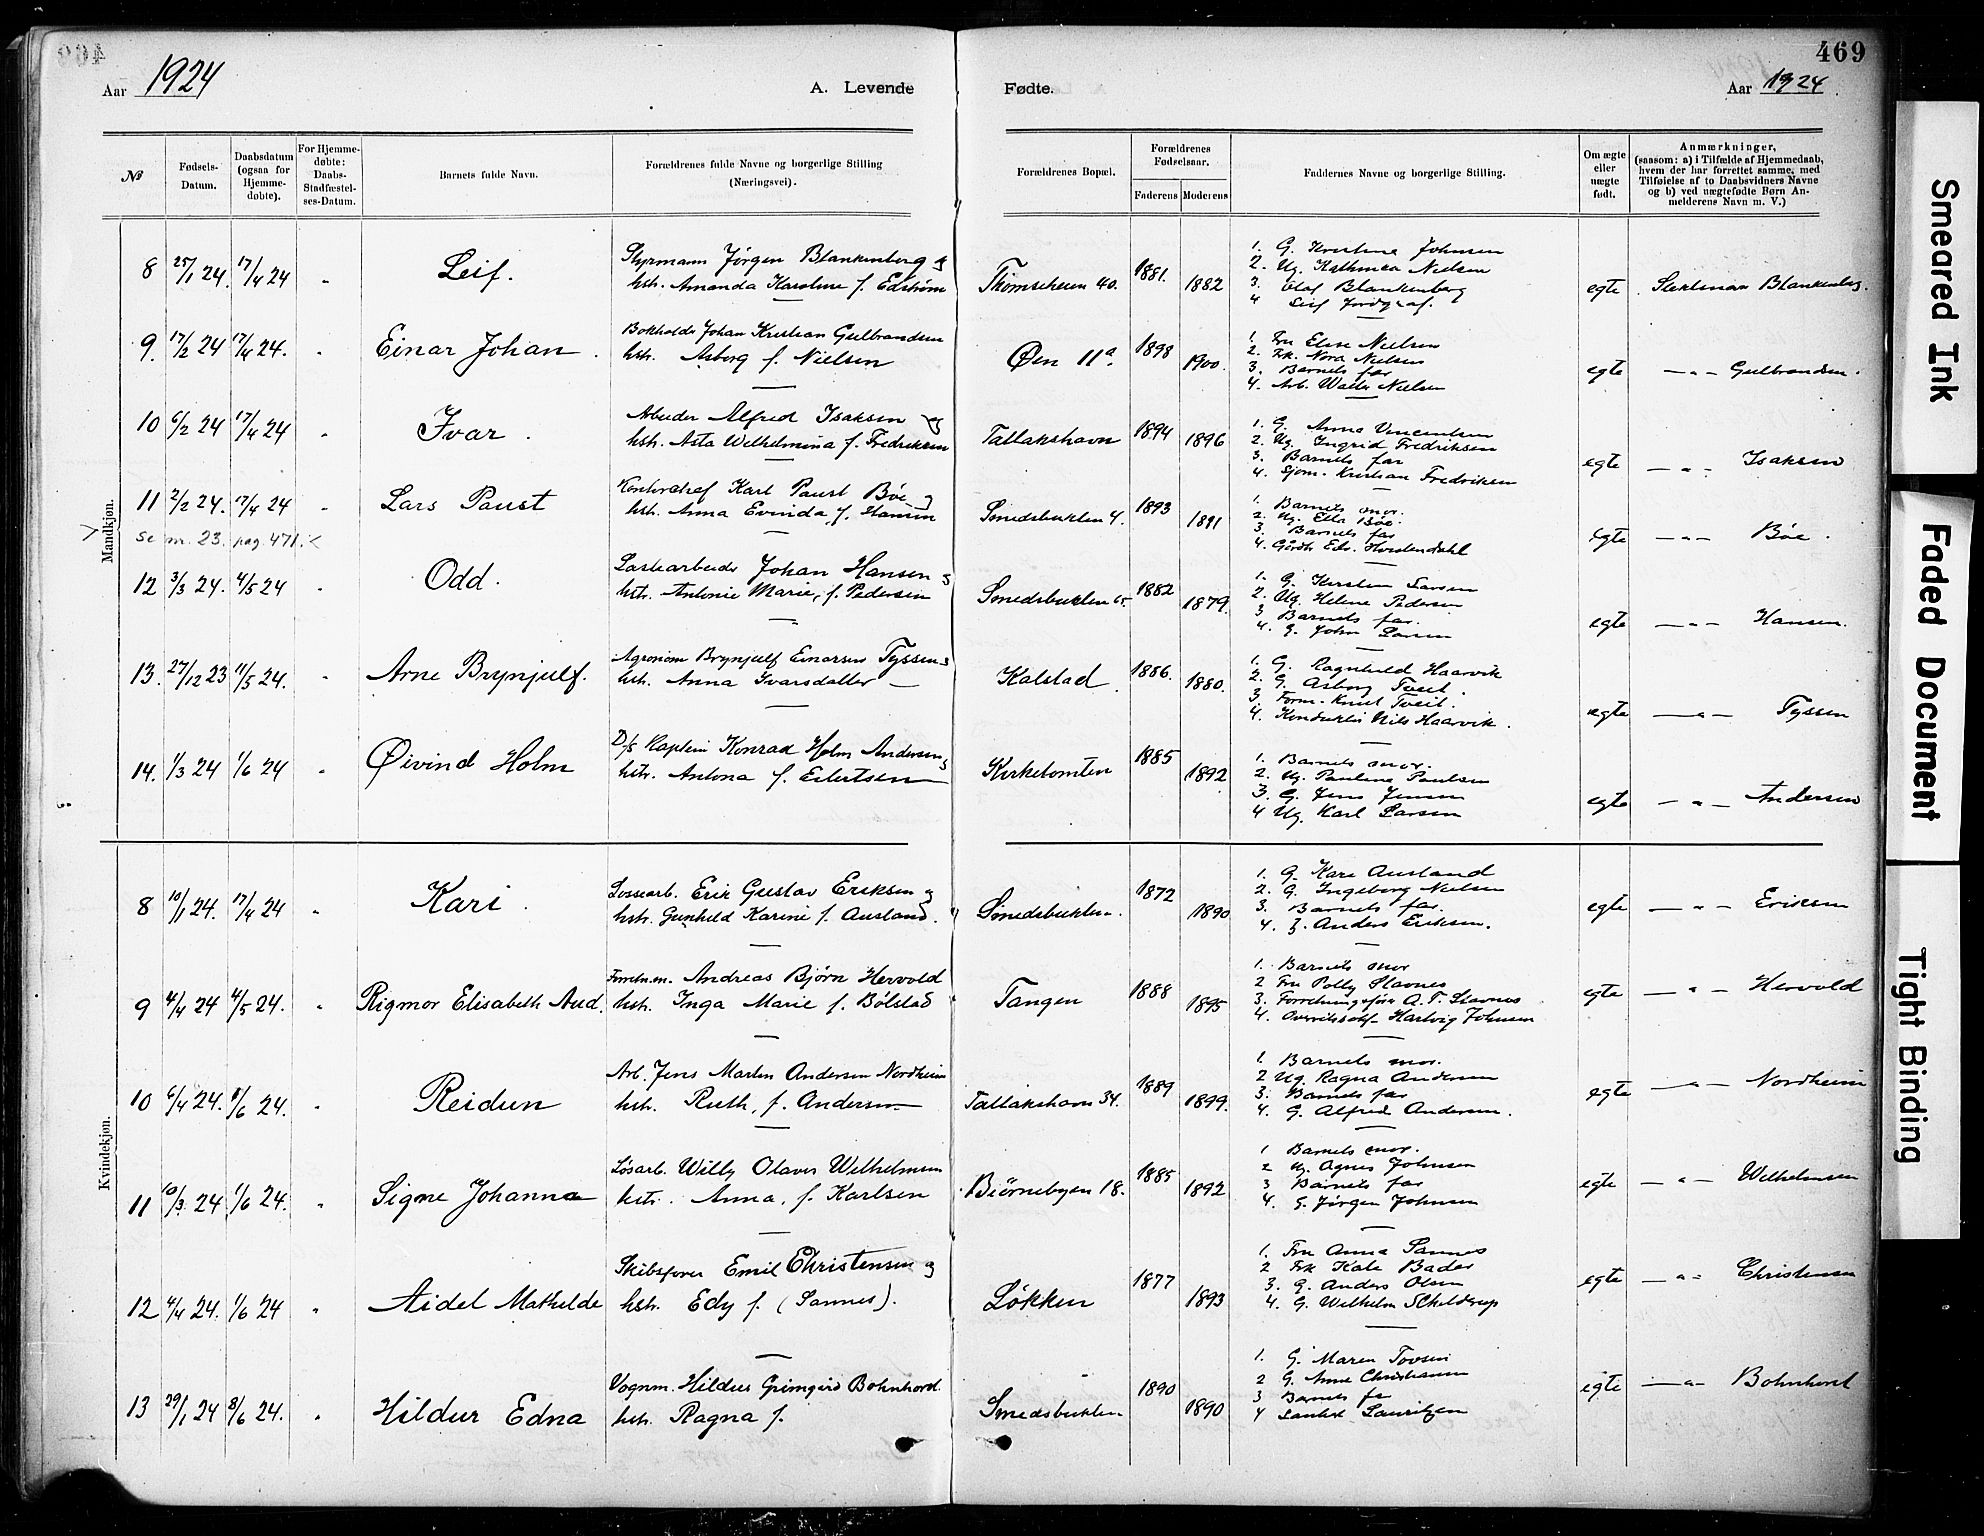 469
1924
Aar
A. Levende
Fødte.
Aar 1924
№
Fødsels-
Datum.
Daabsdatum
(ogsaa for
Hjemme-
døbte).
For Hjemme-
døbte:
Daabs-
Stadfæstel-
ses-Datum.
Barnets fulde Navn.
Forældrenes fulde Navne og borgerlige Stilling
(Næringsvei).
Forældrenes Bopæl.
Forældrenes
Fødselsaar.
Faderens
Moderens
Faddernes Navne og borgerlige Stilling.
Om ægte
eller
uægte
født.
Anmærkninger,
(saasom: a) i Tilfælde af Hjemmedaab,
hvem der har forrettet samme, med
Tilføielse af to Daabsvidners Navne
og b) ved uægtefødte Børn An-
melderens Navn m. V.)
Mandkjøn.
8 25/1 24. 17/4 24 " Leif.
Styrmann Jørgen Blankenberg og
hstr. Amanda Karoline f. Edstrøm
Thomseheien 40. 1881. 1882
1. G. Kristine Johnsen
2. Ug. Kathinca Nielsen
3. Olaf Blankenberg
4 Leif
egte Blankenberg.
9. 17/2 24 17/4 24. " Einar Johan.
Bokholder Johan Kristian Gulbrandsen
hstr. Asborg f. Nielsen
Øen 11a. 1898 1900
1. Fru Elise Nielsen
2. Frk. Nora Nielsen
3. Barnets far
4. Arb. Nielsen
egte — " — Gulbrandsen.
10 6/2 24 17/4 24 " Ivar.
Arbeider Alfred Isaksen og
hstr. Asta Wilhelmina f. Fredriksen
Tallakshavn 1894 1896
1. G. Anna Vincentsen
2. Ug. Ingrid Fredriksen
3. Barnets far
4. Sjøm. Kristian Fredriksen
egte — " — Isaksen
11 2/2 24. 17/4 24 " Lars Paust
Kontorchef Karl Paust Bøe og
hstr. Anna Evinda, f. Hansen
Smedsbukten 4. 1893 1891
1. Barnets mor.
2. Ug. Ella Bøe.
3. Barnets far
4. Gårdb. Edv. Hvistendahl
egte — " — Bøe.
se nr. 23. pag. 471.
12 3/3 24. 4/5 24 " Odd.
Lastearbeider Johan Hansen og
hstr. Antonie Marie, f. Pedersen
Smedsbukten 65. 1882 1879.
1. G. Kirsten Larsen
2. Ug. Helene Pedersen
3 Barnets far.
4. G. John Larsen
egte — " — Hansen.
13. 27/12 23 11/5 24. " Arne Brynjulf.
Agronom Brynjulf Einarsen Tyssen og
hstr. Anna Ivarsdatter —
Kalstad 1886. 1880.
1. G. Ragnhild Haarvik
2. G. Asborg Tveit.
3. Form. Knut Tveit.
4. Konduktør Nils Haarvik.
egte — " — Tyssen
14. 1/3 24 1/6 24 " Øivind Holm
D/S Kaptein Konrad Holm Andersen og
hstr. Antona f. Eilertsen
Kirketomten 1885 1892
1. Barnets mor.
2. Ug. Pauline Paulsen
3. G. Jens Jensen
4 Ug. Karl Larsen
egte — " — Andersen
Kvindekjøn.
8 10/1 24. 17/4 24 " Kari.
Lossearb. Erik Gustav Eriksen og
hstr. Gunhild Karine f. Ausland.
Smedsbukten. 1872 1890
1. G. Kari Ausland
2. G. Ingeborg Nielsen
3. Barnets far.
4. G. Anders Eriksen.
egte — " — Eriksen
9 4/4 24 4/5 24. " Rigmor Elisabeth Aud.
Forretn.m. Andreas Bjørn Hervold
hstr. Inga Marie f. Bölstad
Tangen 1888 1895
1. Barnets mor
2 Fru Polly Stavnes
3. Forretningsfører A. T. Stavnes
4. Hartvig Johnsen
egte — " — Hervold
10 6/4 24. 1/6 24. " Reidun
Arb. Jens Martin Andersen Nordheim
hstr. Ruth, f. Andersen
Tallakshavn 34. 1889 1899.
1. Barnets mor.
2 Ug. Ragna Andersen
3. Barnets far
4. G. Alfred Andersen.
egte — " — Nordheim
11 10/3 24 1/6 24. " Signe Johanna
Løsarb. Willy Olaves Wilhelmsen
hstr. Anna, f. Karlsen
Bjørnebyen 18. 1885 1892
1 Barnets mor.
2 Ug. Agnes Johnsen
3 Barnets far
4. G. Jørgen Johnsen
egte — " — Wilhelmsen
12 4/4 24. 1/6 24 " Aidel Mathilde
Skibsfører Emil Christensen og
hstr. Edy f. (Sannes).
Løkken 1877 1893
1. Fru Anna Sannes
2 Frk Kate Bader
3. G. Anders Olsen
4. G. Wilhelm Scheldrup
egte — " — Christensen
13 29/1 24 8/6 24. " Hildur Edna
Vognm. Hildus Grimgird Bohnhord.
hstr. Ragna f.
Smedsbukten 1890 1890
1. G. Maren Tovsen
2 G. Anne Christiansen
3 Barnets far
4 Lauritzen
egte — " — Bohnhorst
Smeared Ink
Faded Document
Tight Binding